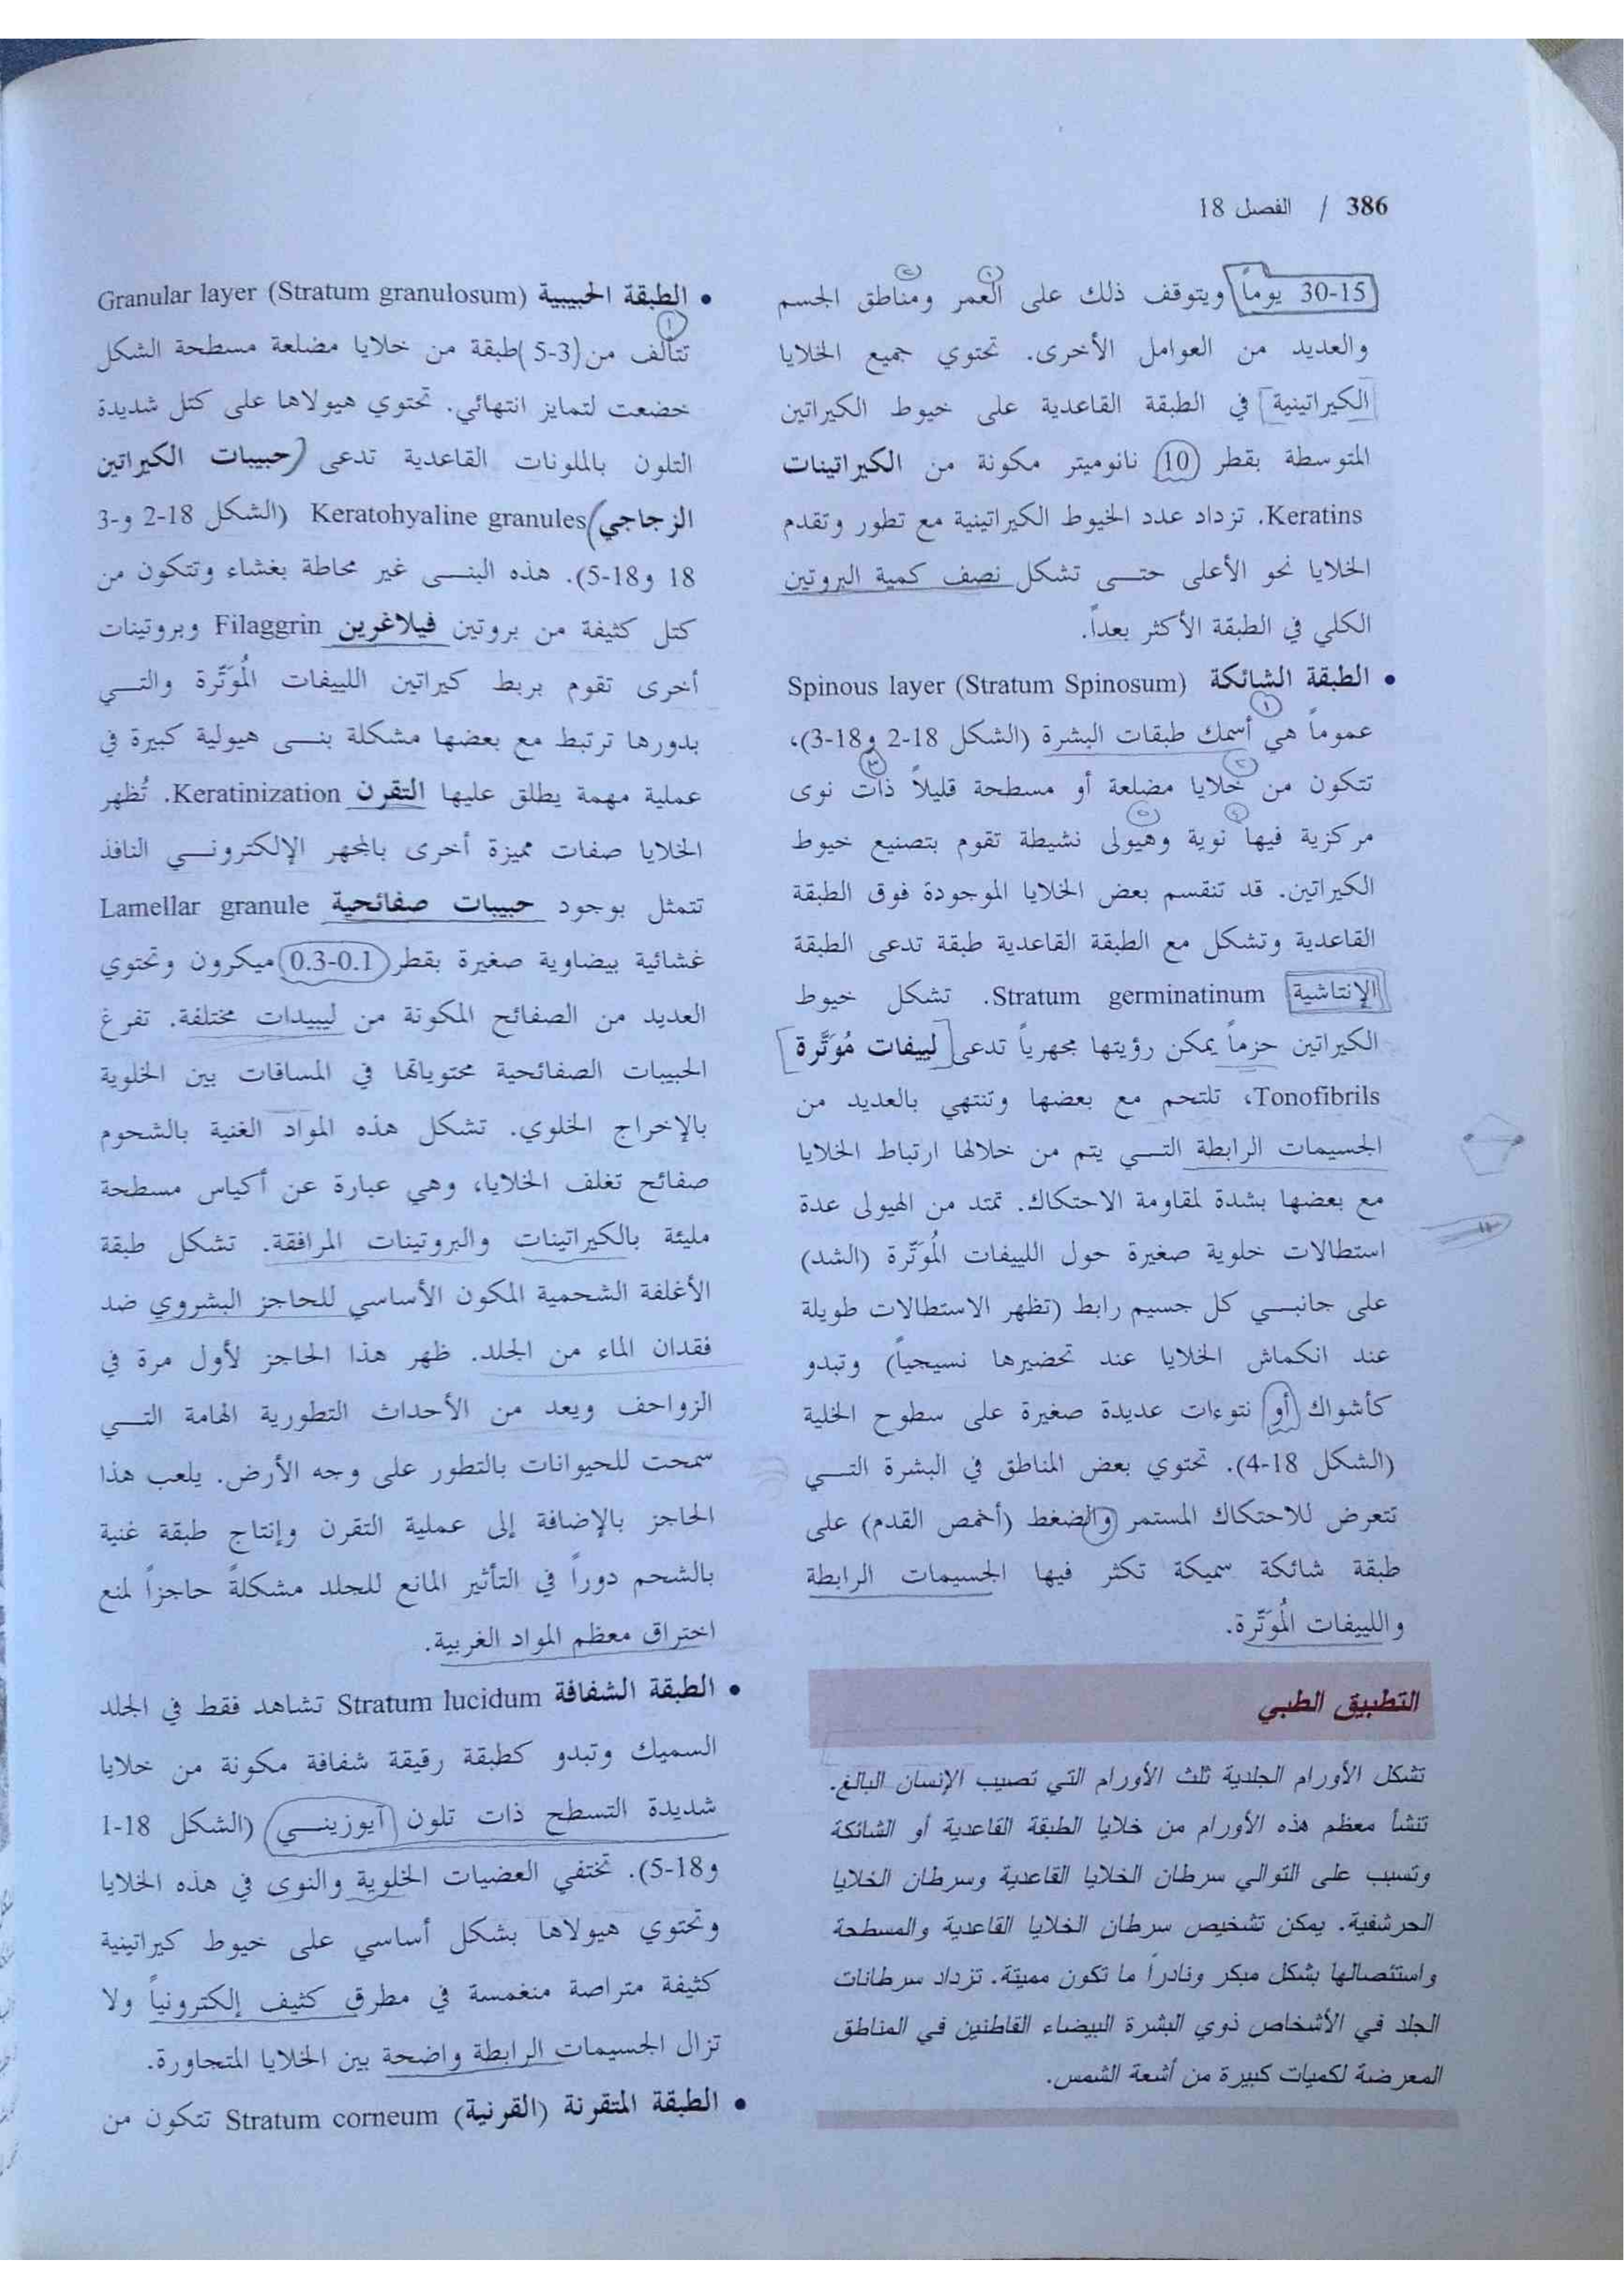 386 / الفصل 18
15-30 يوماً ويتوقف ذلك على العمر ومناطق الجسم
والعديد من العوامل الأخرى. تحتوي جميع الخلايا
الكيراتينية في الطبقة القاعدية على خيوط الكيراتين
المتوسطة بقطر 10 نانوميتر مكونة من الكيراتينات
Keratins. تزداد عدد الخيوط الكيراتينية مع تطور وتقدم
الخلايا نحو الأعلى حتى تشكل نصف كمية البروتين
الكلي في الطبقة الأكثر بعداً.
• الطبقة الشائكة Spinous layer (Stratum Spinosum)
عموماً هي أسمك طبقات البشرة (الشكل 18-2 و18-3)،
تتكون من خلايا مضلعة أو مسطحة قليلاً ذات نوى
مركزية فيها نوية وهيولى نشيطة تقوم بتصنيع خيوط
الكيراتين. قد تنقسم بعض الخلايا الموجودة فوق الطبقة
القاعدية وتشكل مع الطبقة القاعدية طبقة تدعى الطبقة
الإنتاشية Stratum germinatinum. تشكل خيوط
الكيراتين حزماً يمكن رؤيتها مجهرياً تدعى لييفات مُوَتَّرة
Tonofibrils، تلتحم مع بعضها وتنتهي بالعديد من
الجسيمات الرابطة التي يتم من خلالها ارتباط الخلايا
مع بعضها بشدة لمقاومة الاحتكاك. تمتد من الهيولى عدة
استطالات خلوية صغيرة حول اللييفات المُوَتّرة (الشد)
على جانبي كل جسيم رابط (تظهر الاستطالات طويلة
عند انكماش الخلايا عند تحضيرها نسيجياً) وتبدو
كأشواك أو نتوءات عديدة صغيرة على سطوح الخلية
(الشكل 18-4). تحتوي بعض المناطق في البشرة التي
تتعرض للاحتكاك المستمر والضغط (أخمص القدم) على
طبقة شائكة سميكة تكثر فيها الجسيمات الرابطة
واللييفات المُوَتّرة.
التطبيق الطبي
تشكل الأورام الجلدية ثلث الأورام التي تصيب الإنسان البالغ.
تنشأ معظم هذه الأورام من خلايا الطبقة القاعدية أو الشائكة
وتسبب على التوالي سرطان الخلايا القاعدية وسرطان الخلايا
الحرشفية. يمكن تشخيص سرطان الخلايا القاعدية والمسطحة
واستئصالها بشكل مبكر ونادراً ما تكون مميتة. تزداد سرطانات
الجلد في الأشخاص ذوي البشرة البيضاء القاطنين في المناطق
المعرضة لكميات كبيرة من أشعة الشمس.
• الطبقة الحبيبية Granular layer (Stratum granulosum)
تتألف من (3-5) طبقة من خلايا مضلعة مسطحة الشكل
خضعت لتمايز انتهائي. تحتوي هيولاها على كتل شديدة
التلون بالملونات القاعدية تدعى حبيبات الكيراتين
الزجاجي Keratohyaline granules (الشكل 18-2 و3-
18 و18-5). هذه البنى غير محاطة بغشاء وتتكون من
كتل كثيفة من بروتين فيلاغرين Filaggrin وبروتينات
أخرى تقوم بربط كيراتين اللييفات المُوَتّرة والتي
بدورها ترتبط مع بعضها مشكلة بنى هيولية كبيرة في
عملية مهمة يطلق عليها التقرن Keratinization. تُظهر
الخلايا صفات مميزة أخرى بالمجهر الإلكتروني النافذ
تتمثل بوجود حبيبات صفائحية Lamellar granule
غشائية بيضاوية صغيرة بقطر 0.1-0.3 ميكرون وتحتوي
العديد من الصفائح المكونة من ليبيدات مختلفة. تفرغ
الحبيبات الصفائحية محتوياتها في المسافات بين الخلوية
بالإخراج الخلوي. تشكل هذه المواد الغنية بالشحوم
صفائح تغلف الخلايا، وهي عبارة عن أكياس مسطحة
مليئة بالكيراتينات والبروتينات المرافقة. تشكل طبقة
الأغلفة الشحمية المكون الأساسي للحاجز البشروي ضد
فقدان الماء من الجلد. ظهر هذا الحاجز لأول مرة في
الزواحف ويعد من الأحداث التطورية الهامة التي
سمحت للحيوانات بالتطور على وجه الأرض. يلعب هذا
الحاجز بالإضافة إلى عملية التقرن وإنتاج طبقة غنية
بالشحم دوراً في التأثير المانع للجلد مشكلةً حاجزاً لمنع
اختراق معظم المواد الغريبة.
• الطبقة الشفافة Stratum lucidum تشاهد فقط في الجلد
السميك وتبدو كطبقة رقيقة شفافة مكونة من خلايا
شديدة التسطح ذات تلون آيوزيني (الشكل 18-1
و18-5). تختفي العضيات الخلوية والنوى في هذه الخلايا
وتحتوي هيولاها بشكل أساسي على خيوط كيراتينية
كثيفة متراصة منغمسة في مطرق كثيف إلكترونياً ولا
تزال الجسيمات الرابطة واضحة بين الخلايا المتجاورة.
• الطبقة المتقرنة (القرنية) Stratum corneum تتكون من